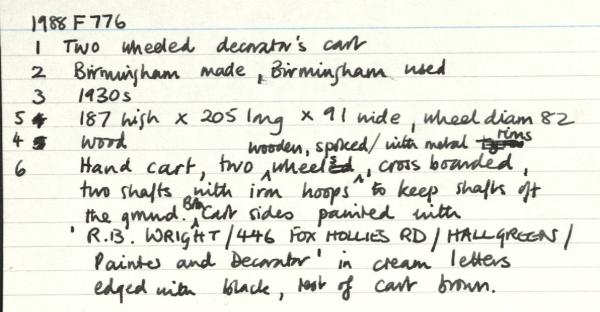 1988 F 776
1 Two wheeled decorator's cart
2 Birmingham made, Birmingham used
3 1930s
5 187 high x 205 long x 91 wide, wheel diam 82
4 Wood
wooden, spoked/ with metal rims
6 Hand cart, two wheels, cross boarded,
two shafts with iron hoops to keep shafts off
the ground. Cart sides painted with
'R.B. WRIGHT/446 FOX HOLLIES RD/HALLGREEN/
Painter and Decorator' in cream letters
edged with black, rest of cart brown.